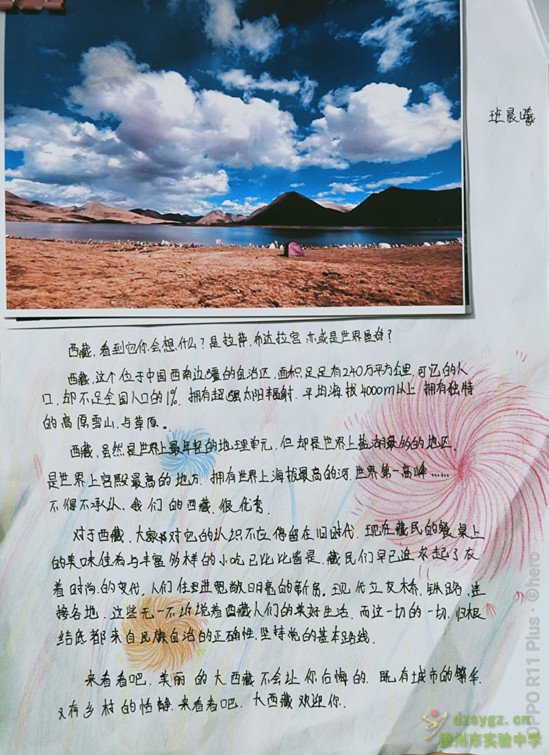 班晨曦
西藏，看到它你会想什么？是拉萨，布达拉宫，亦或是世界屋脊？
西藏，这个位于中国西南边疆的自治区，面积足足有240万平方公里，可它的人
口，却不足全国人口的1%，拥有超强太阳辐射，平均海拔4000m以上，拥有独特
的高原雪山，与草原。
西藏，虽然是世界上最年轻的地理单元，但却是世界上盐湖最多的地区，
是世界上宫殿最高的地方，拥有世界上海拔最高的河，世界第一高峰……
不得不承认，我们的西藏，很优秀。
对于西藏，大家对它的认识不应停留在旧时代，现在藏民的餐桌上
的美味佳肴与丰富多样的小吃已比比皆是，藏民们早已追求起了衣
着时尚的变化，人们住进宽敞明亮的新房，现代立交桥，铁路，连
接各地，这些无一不诉说着西藏人们的美好生活，而这一切的一切，归根
结底都来自民族自治的正确性，坚持党的基本路线。
来看看吧，美丽的大西藏不会让你后悔的，既有城市的繁华，
又有乡村的恬静，来看看吧，大西藏欢迎你。
OPPO R11 Plus · ©hero
dzsyzx.cn
德州市实验中学